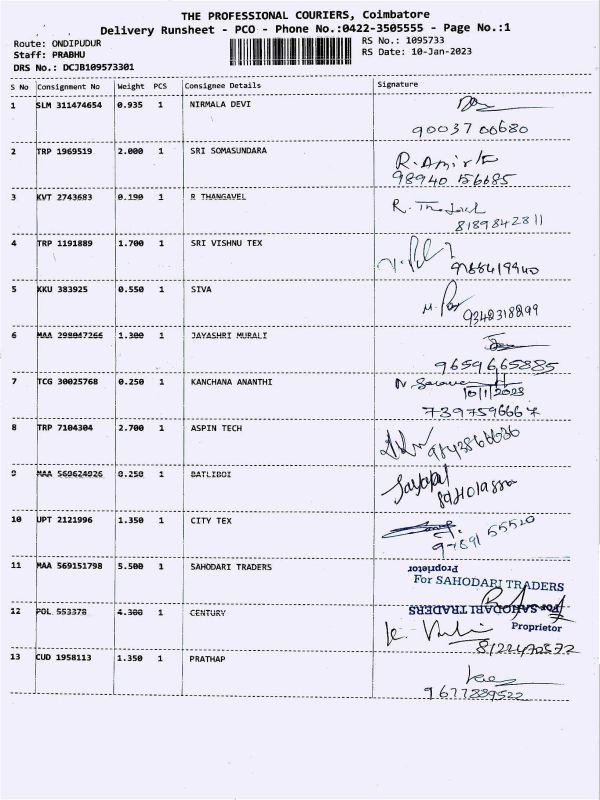 THE PROFESSIONAL COURIERS, Coimbatore
Delivery Runsheet - PCO - Phone No.:0422-3505555 - Page No.:1
Route: ONDIPUDUR
RS No.: 1095733
Staff: PRABHU
RS Date: 10-Jan-2023
DRS No.: DCJB109573301
S No Consignment No Weight PCS Consignee Details Signature
1 SLM 311474654 0.935 1 NIRMALA DEVI
90037 00680
2 TRP 1969519 2.000 1 SRI SOMASUNDARA
98940 156685
3 KVT 2743683 0.190 1 R THANGAVEL
8189842811
4 TRP 1191889 1.700 1 SRI VISHNU TEX
9788419940
5 KKU 383925 0.550 1 SIVA
9342318899
6 MAA 298047266 1.300 1 JAYASHRI MURALI
9659665885
7 TCG 30025768 0.250 1 KANCHANA ANANTHI
10/1/2023
7397596667
8 TRP 7104304 2.700 1 ASPIN TECH
9 MAA 569624926 0.250 1 BATLIBOI
10 UPT 2121996 1.350 1 CITY TEX
97891 55520
11 MAA 569151798 5.500 1 SAHODARI TRADERS
Proprietor
For SAHODARI TRADERS
12 POL 553378 4.300 1 CENTURY
For SAHODARI TRADERS
Proprietor
8122470572
13 CUD 1958113 1.350 1 PRATHAP
9677889522